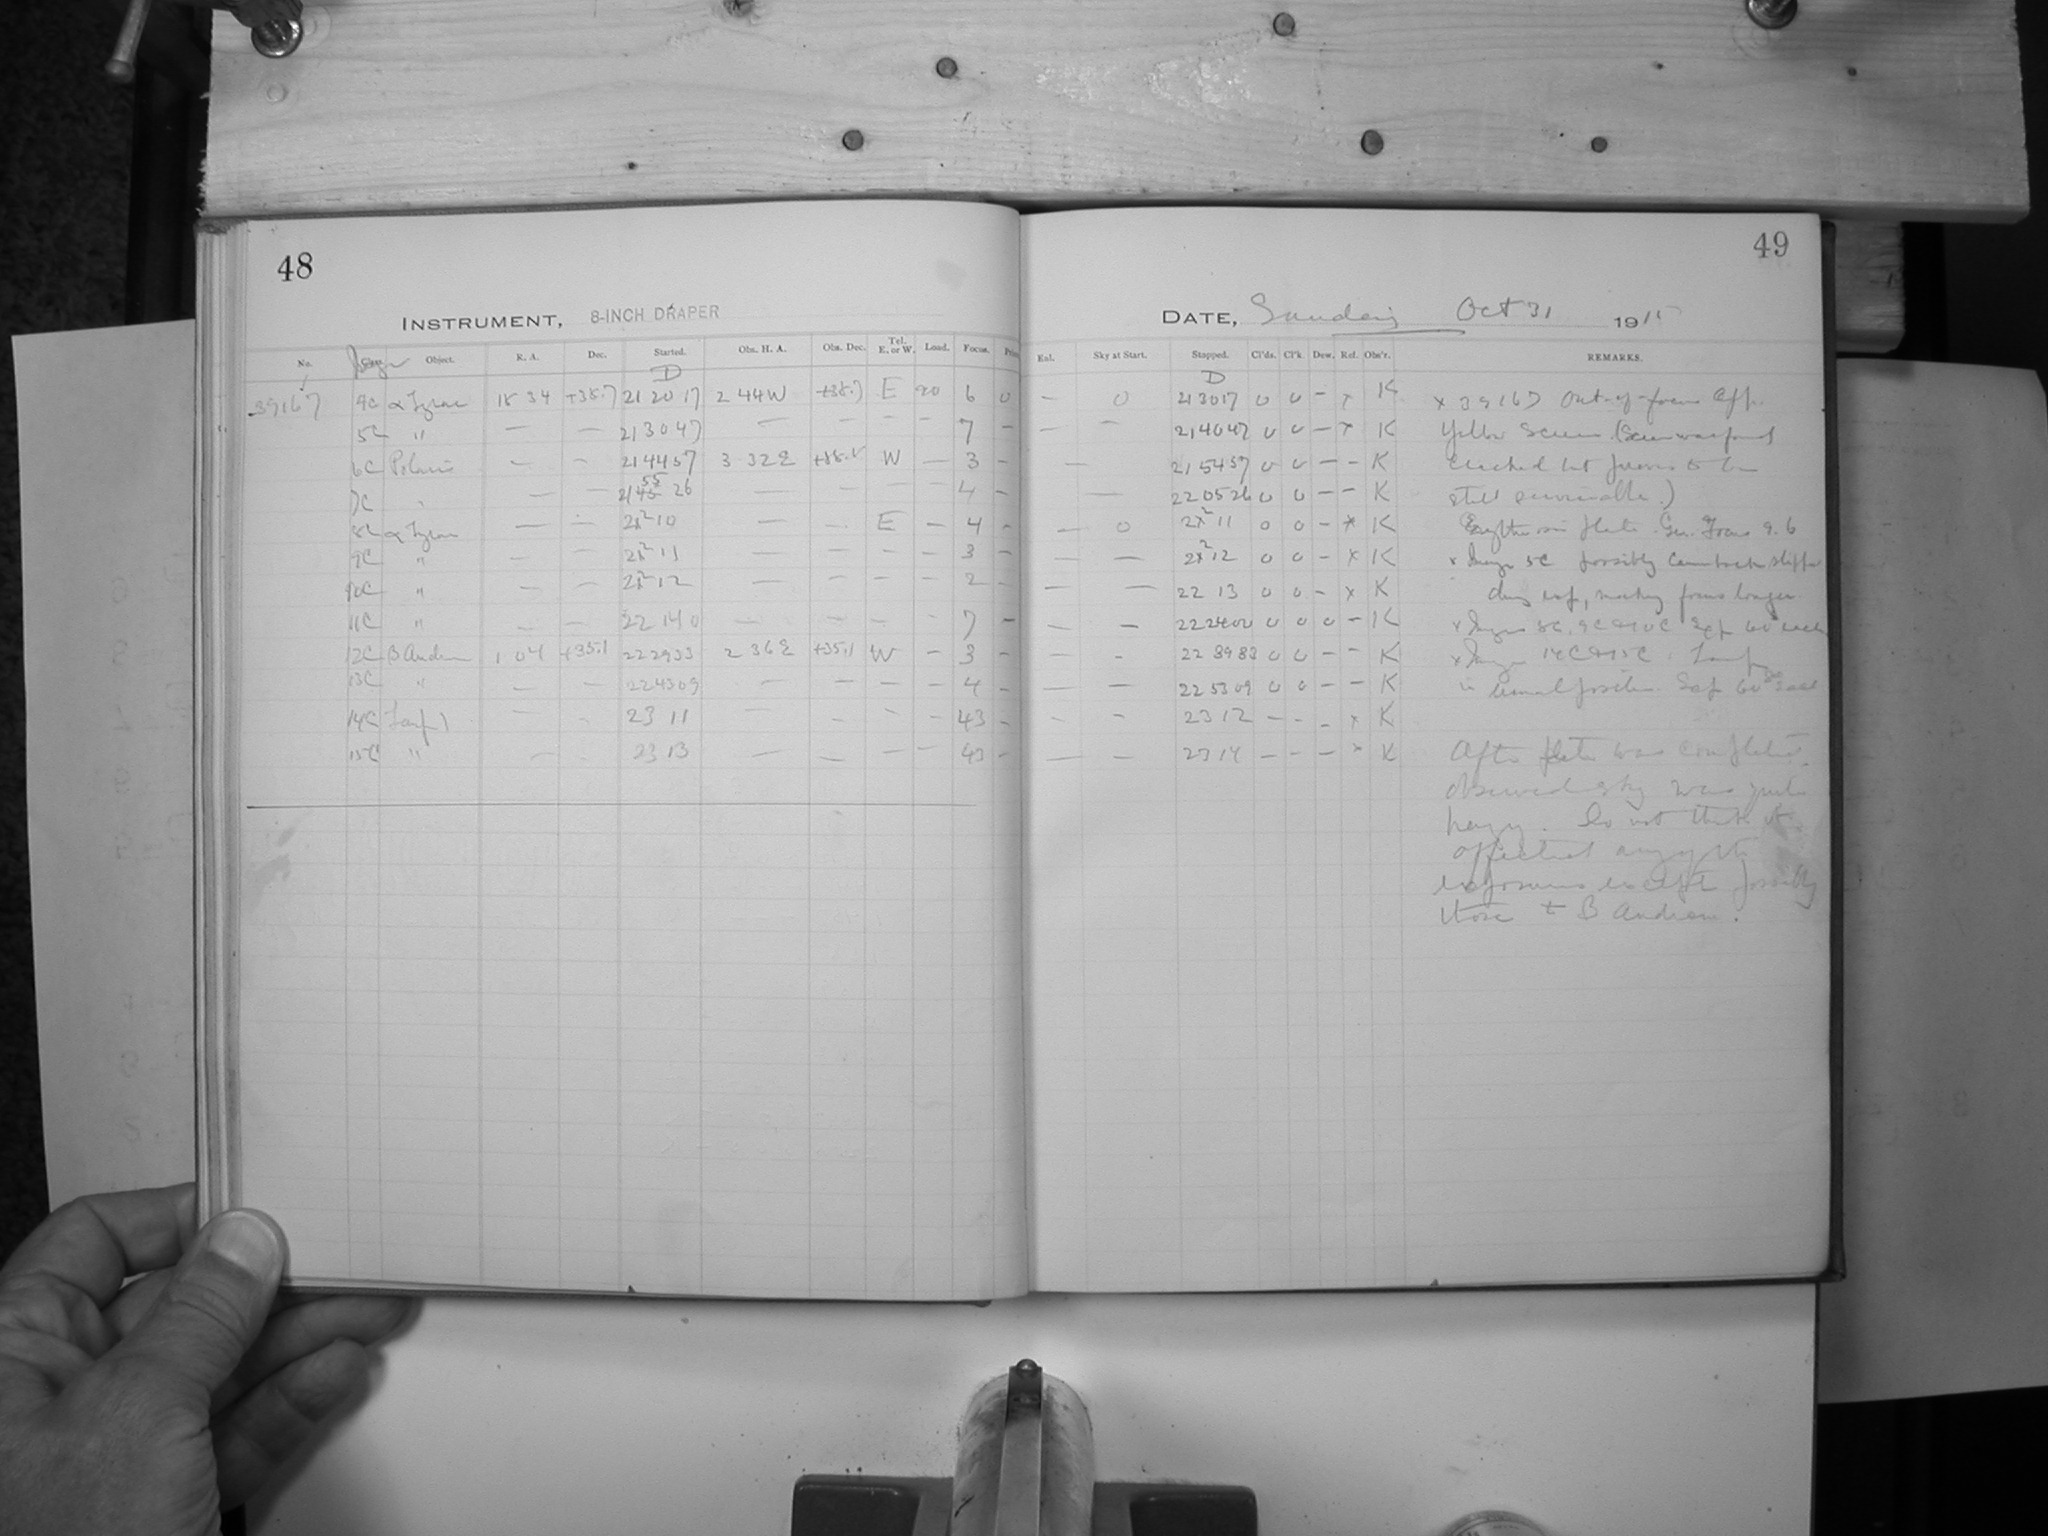 48
INSTRUMENT, 8-INCH DRAPER
No. Object. R. A. Dec. Started. Obs. H. A. Obs. Dec. Tel. E. or W. Load. Focus.
D
39167 4C α Lyrae 18 34 +38.7 21 20 17 2 44 W +38.7 E 20 6 0
5C " — — 21 30 47 — — — — 7 —
6C Polaris — — 21 44 57 3 32 E W — 3 —
7C " — — 21 55 26 — — — — 4 —
8C α Lyrae — — 22 10 — — E — 4 —
9C " — — 22 11 — — — — 3 —
10C " — — 22 12 — — — — 2 —
11C " — — 22 14 0 — — — — 7 —
12C B Androm 1 04 +35.1 22 29 33 2 36 E +35.1 W — 3 —
13C " — — 22 43 09 — — — — 4 —
14C — — 23 11 — — — — 43 —
15C " — — 23 13 — — — — 43 —
49
DATE, Sunday Oct 31 1915
Enl. Sky at Start. Stopped. Cl'ds. Cl'k. Dew. Ref. Obs'r. REMARKS.
D
— 0 21 30 17 0 0 — x K x 39167 Out-of-focus App.
— — 21 40 47 0 0 — x K Yellow Screen (Screen was found
— 21 54 57 0 0 — — K cracked but proves to be
— 22 05 26 0 0 — — K still serviceable.)
— 0 22 11 0 0 — x K Erythrosin plate. Gen. Focus 9.6
— — 22 12 0 0 — x K x Image 5C possibly camback slipped
— — 22 13 0 0 — x K during exp, making focus longer
— — 22 24 00 0 0 0 — K x Images 8C, 9C & 10C Exp 60s each
— - 22 39 33 0 0 — — K x Images 14C & 15C
— — 22 53 09 0 0 — — K in usual position. Exp 60s each
— - 23 12 — — — x K
— — 23 14 — — — x K After plate was completed
observed sky was quite
hazy. Do not think it
affected any of the
exposures except possibly
those of B Androm.